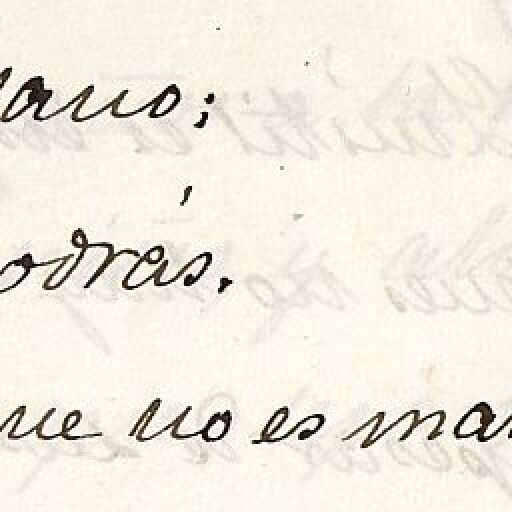 ano;
odrás.
ue no es mar